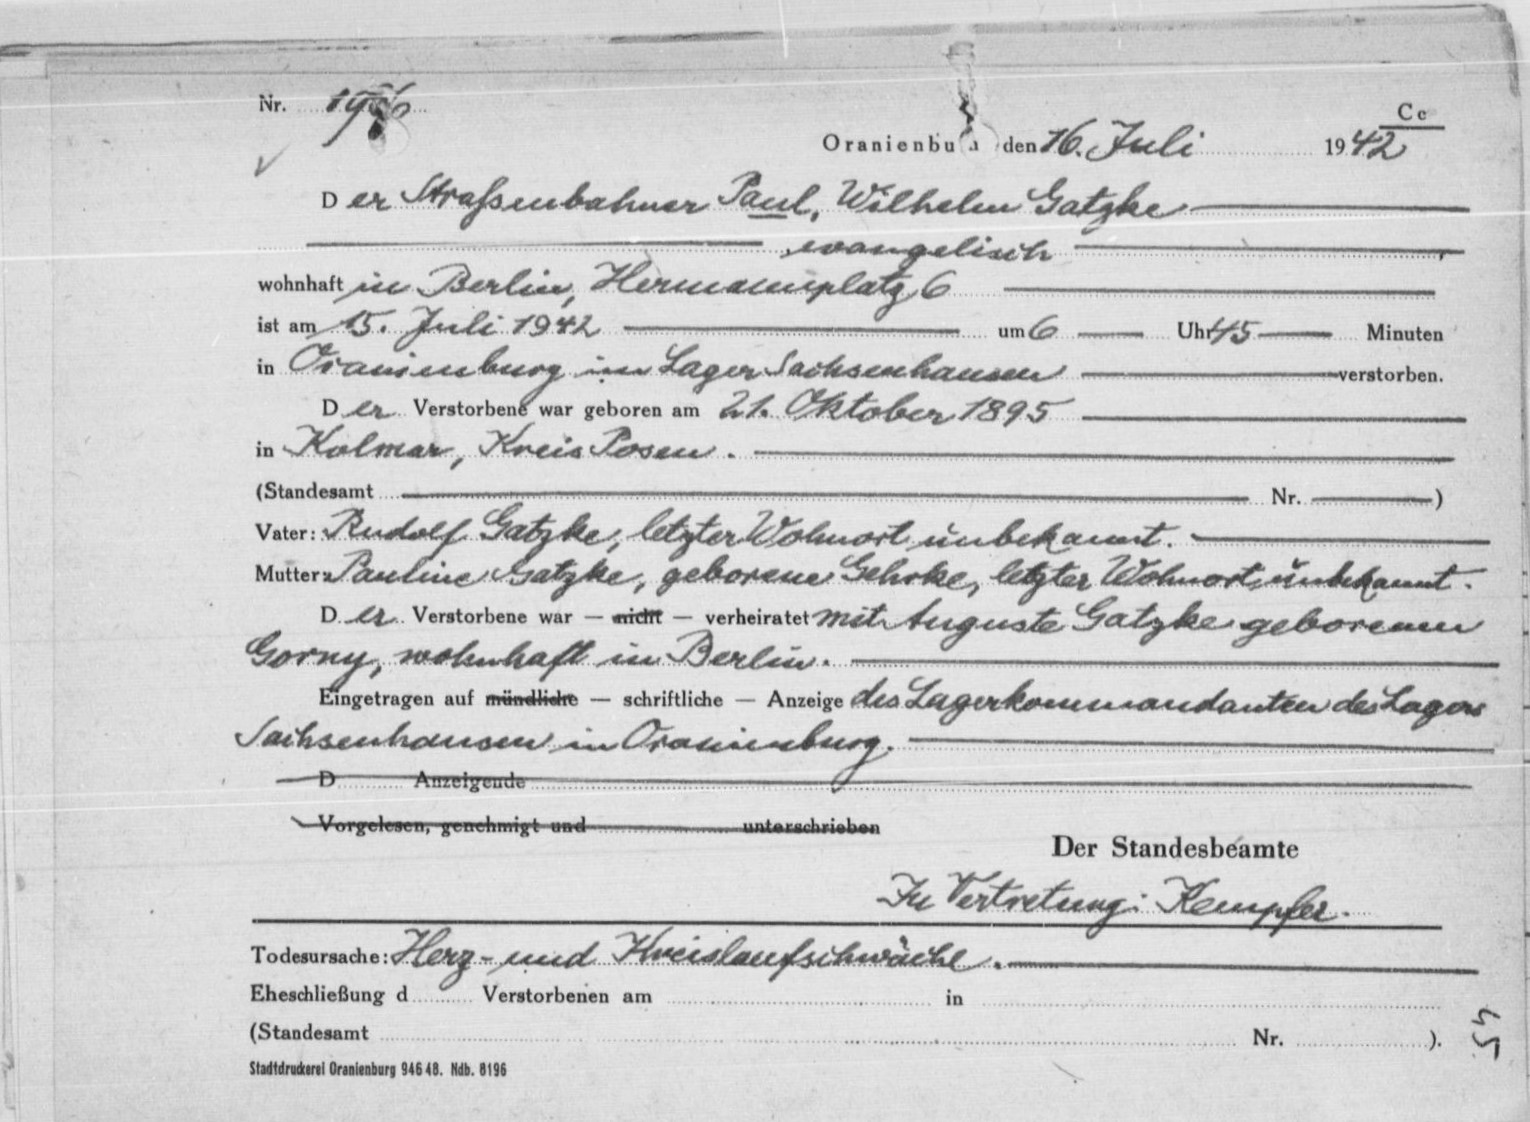 Nr.
Cc
Oranienbu den 16. Juli 1942
Der Straßenbahner Paul, Wilhelm Gatzke
, evangelisch
wohnhaft in Berlin, Hermannplatz 6
ist am 15. Juli 1942 um 6 Uhr 45 Minuten
in Oranienburg im Lager Sachsenhausen verstorben.
Der Verstorbene war geboren am 21. Oktober 1895
in Kolmar, Kreis Posen.
(Standesamt Nr. )
Vater: Rudolf Gatzke, letzter Wohnort unbekannt.
Mutter: Pauline Gatzke, geborene Gehrke, letzter Wohnort unbekannt.
Der Verstorbene war — nicht — verheiratet mit Auguste Gatzke geborenen
Gorny, wohnhaft in Berlin.
Eingetragen auf mündliche — schriftliche — Anzeige des Lagerkommandanten des Lagers
Sachsenhausen in Oranienburg.
D Anzeigende
Vorgelesen, genehmigt und unterschrieben
Der Standesbeamte
In Vertretung: Kempfer.
Todesursache: Herz- und Kreislaufschwäche.
Eheschließung d Verstorbenen am in
(Standesamt Nr. ).
45
Stadtdruckerei Oranienburg 946 48. Ndb. 8196